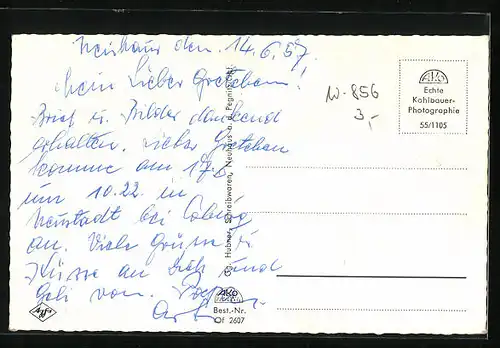 Neuhaus den. 14.6.57.
Mein Lieber Gretchen.
Brief u. Bilder dankend
erhalten. Liebe Gretchen
komme am 17.6
um 10.22 in
Neustadt bei Coburg
an. Viele Grüße u.
Küsse an Dich und
von
W-856
3,-
AKO
Echte
Kohlbauer-
Photographie
55/1105
Gg. Hubner, Schreibwaren, Neuhaus a. d. Pegnitz
AKO
Best.-Nr.
Of 2607
Agfa